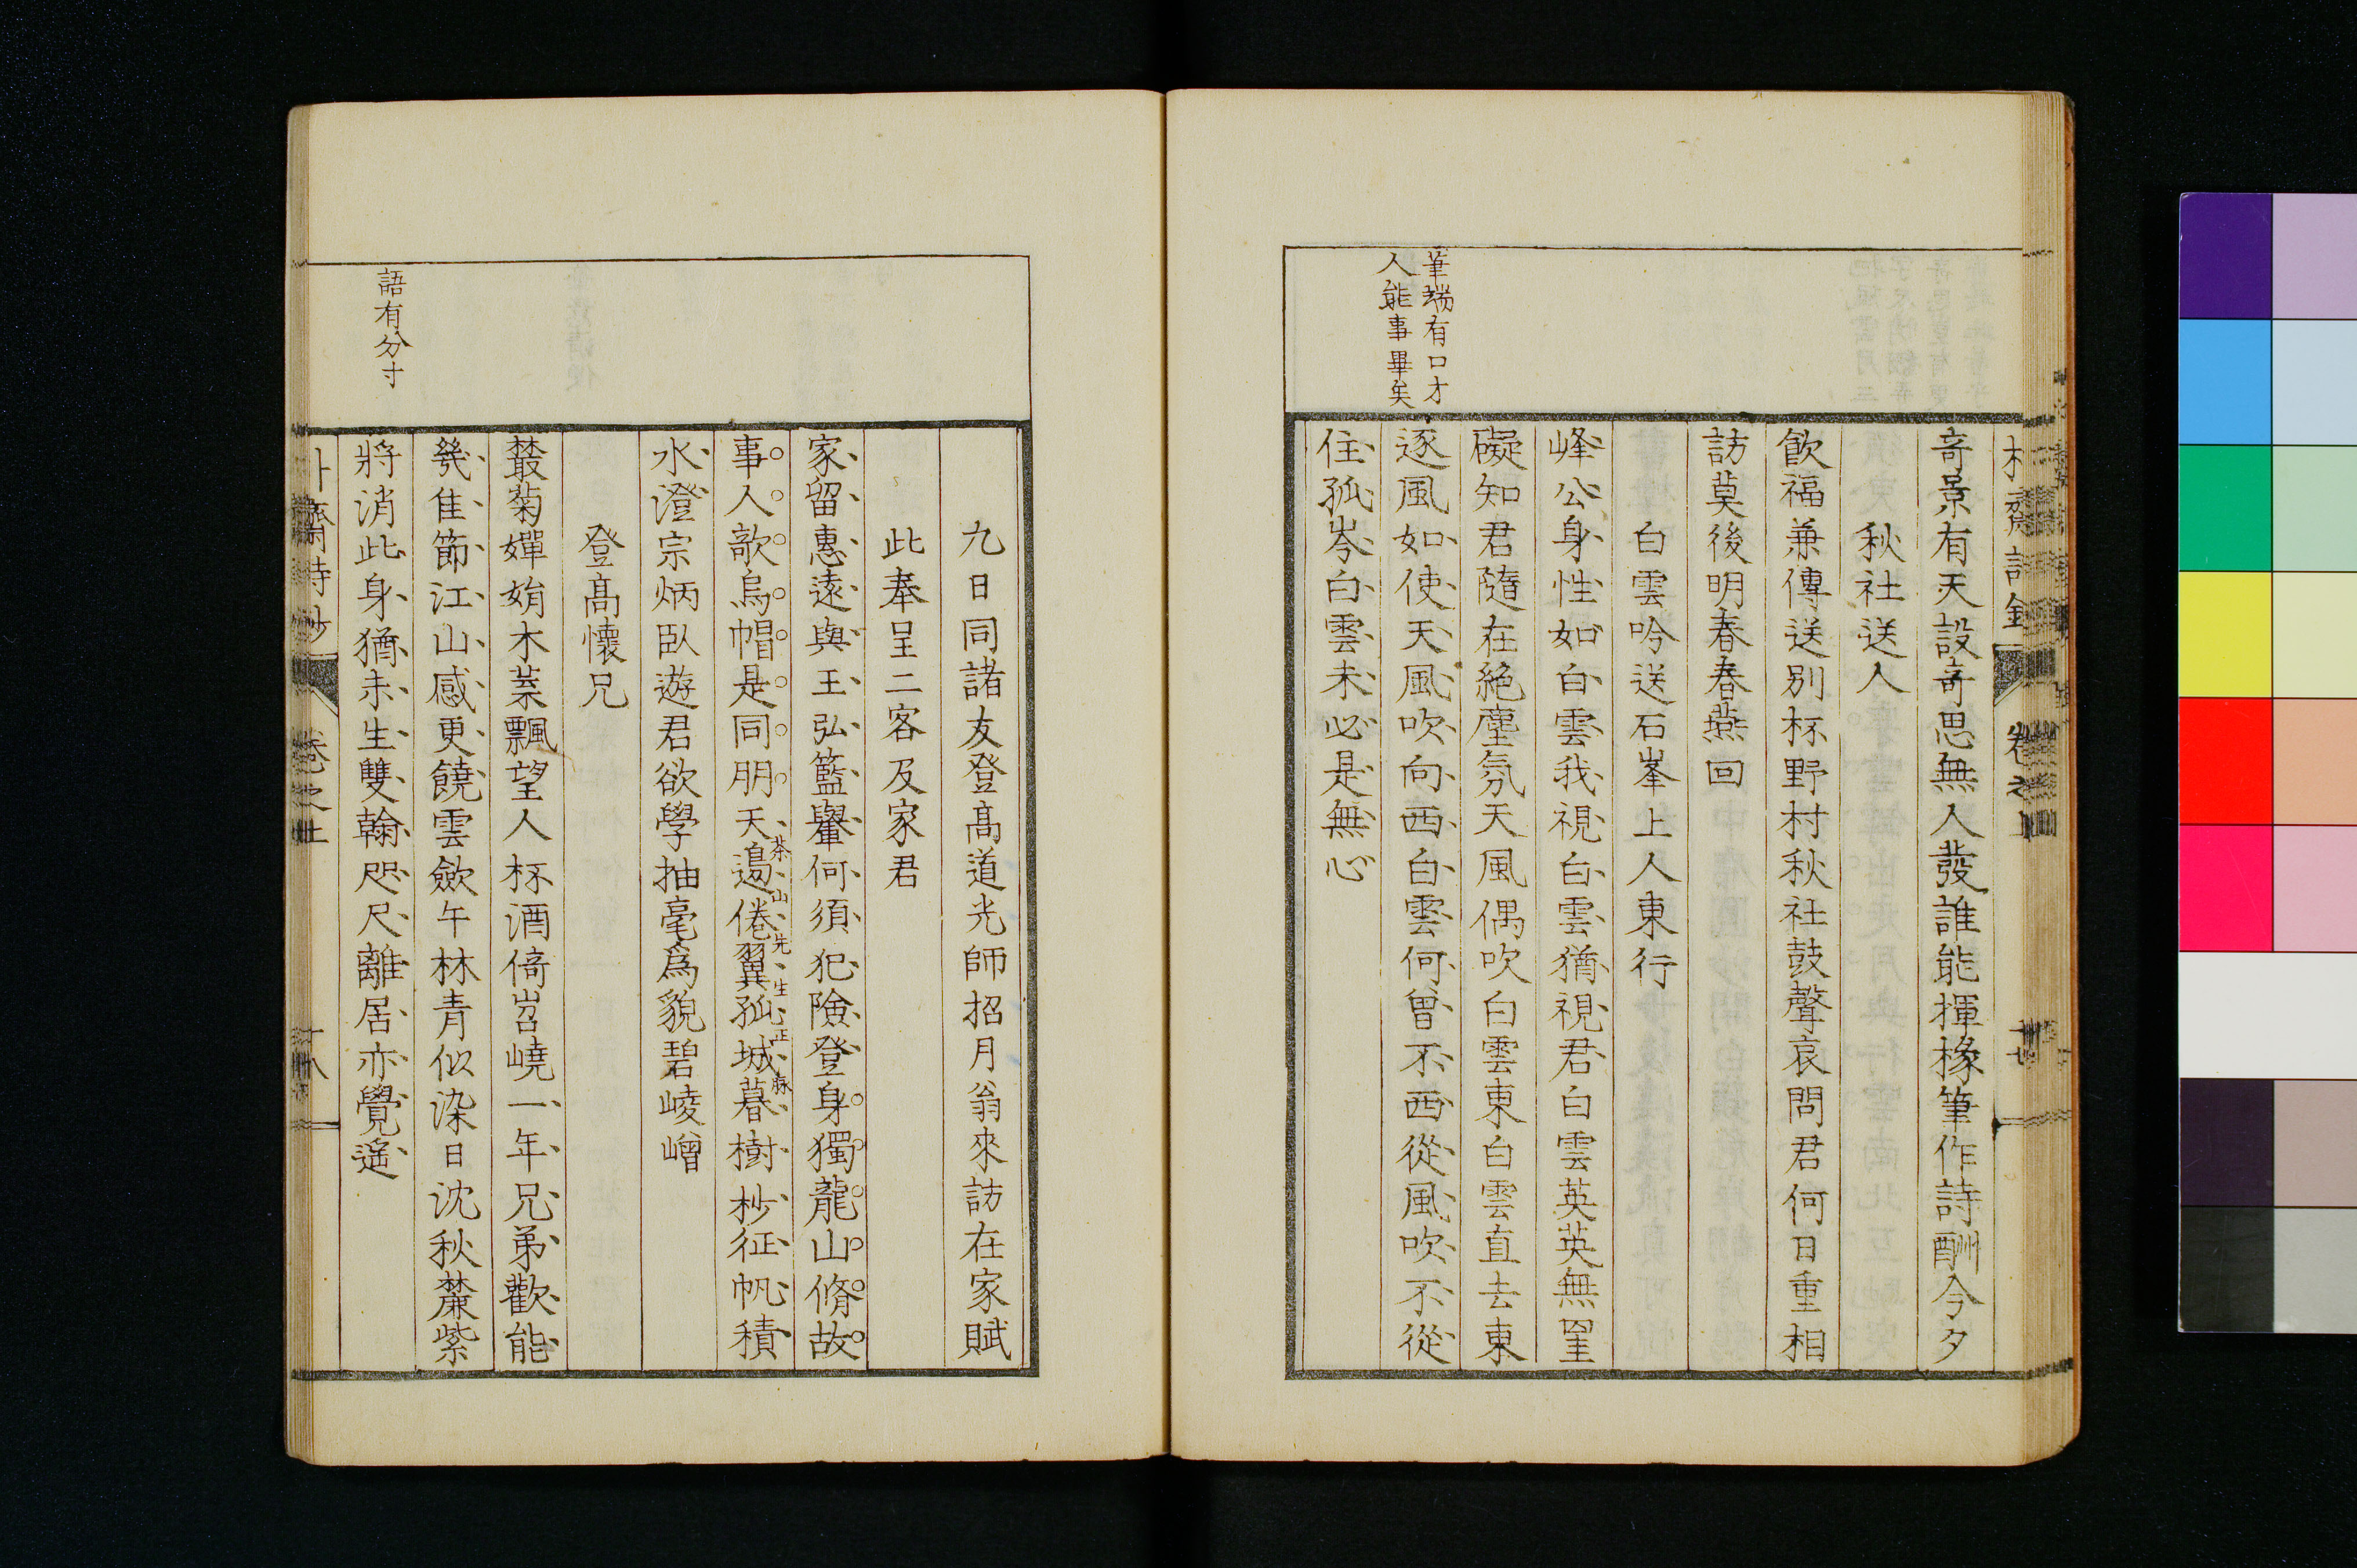 筆端有口才
人能事畢矣
奇景有天設奇思無人發誰能揮椽筆作詩酬今夕
秋社送人
飲福兼傳送別杯野村秋社鼓聲哀問君何日重相
訪莫後明春春燕回
白雲吟送石峯上人東行
峰公身性如白雲我視白雲猶視君白雲英英無罣
礙知君隨在絕塵氛天風偶吹白雲東白雲直去東
逐風如使天風吹向西白雲何曾不西從風吹不從
住孤岑白雲未必是無心
九日同諸友登高道光師招月翁來訪在家賦
此奉呈二客及家君
家留惠遠與王弘籃轝何須犯險登身獨龍山脩故
事人歌烏帽是同朋天邉倦翼孤城暮樹杪征帆積
茶山先生正麻
水澄宗炳臥遊君欲學抽毫爲貌碧崚嶒
登高懷兄
語有分寸
叢菊嬋娟木葉飄望人杯酒倚岧嶢一年兄弟歡能
幾隹節江山感更饒雲歛午林青似染日沈秋麓紫
將消此身猶未生雙翰咫尺離居亦覺遙
齋詩鈔 卷之上